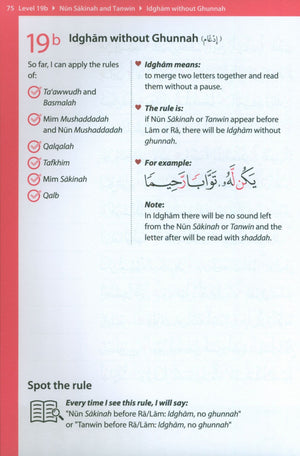 75 Level 19b ▸ Nūn Sākinah and Tanwin ▸ Idghām without Ghunnah
19b Idghām without Ghunnah (إِدْغَام)
So far, I can apply the rules
of:
Ta'awwudh and
Basmalah
Mim Mushaddadah
and Nūn Mushaddadah
Qalqalah
Tafkhim
Mim Sākinah
Qalb
Idghām means:
to merge two letters together and read
them without a pause.
The rule is:
if Nūn Sākinah or Tanwin appear before
Lām or Rā, there will be Idghām without
ghunnah.
For example:
يَكُن لَّهُۥ تَوَّابًا رَّحِيمًا
Note:
In Idghām there will be no sound left
from the Nūn Sākinah or Tanwin and the
letter after will be read with shaddah.
Spot the rule
Every time I see this rule, I will say:
"Nūn Sākinah before Rā/Lām: Idghām, no ghunnah"
or "Tanwin before Rā/Lām: Idghām, no ghunnah"